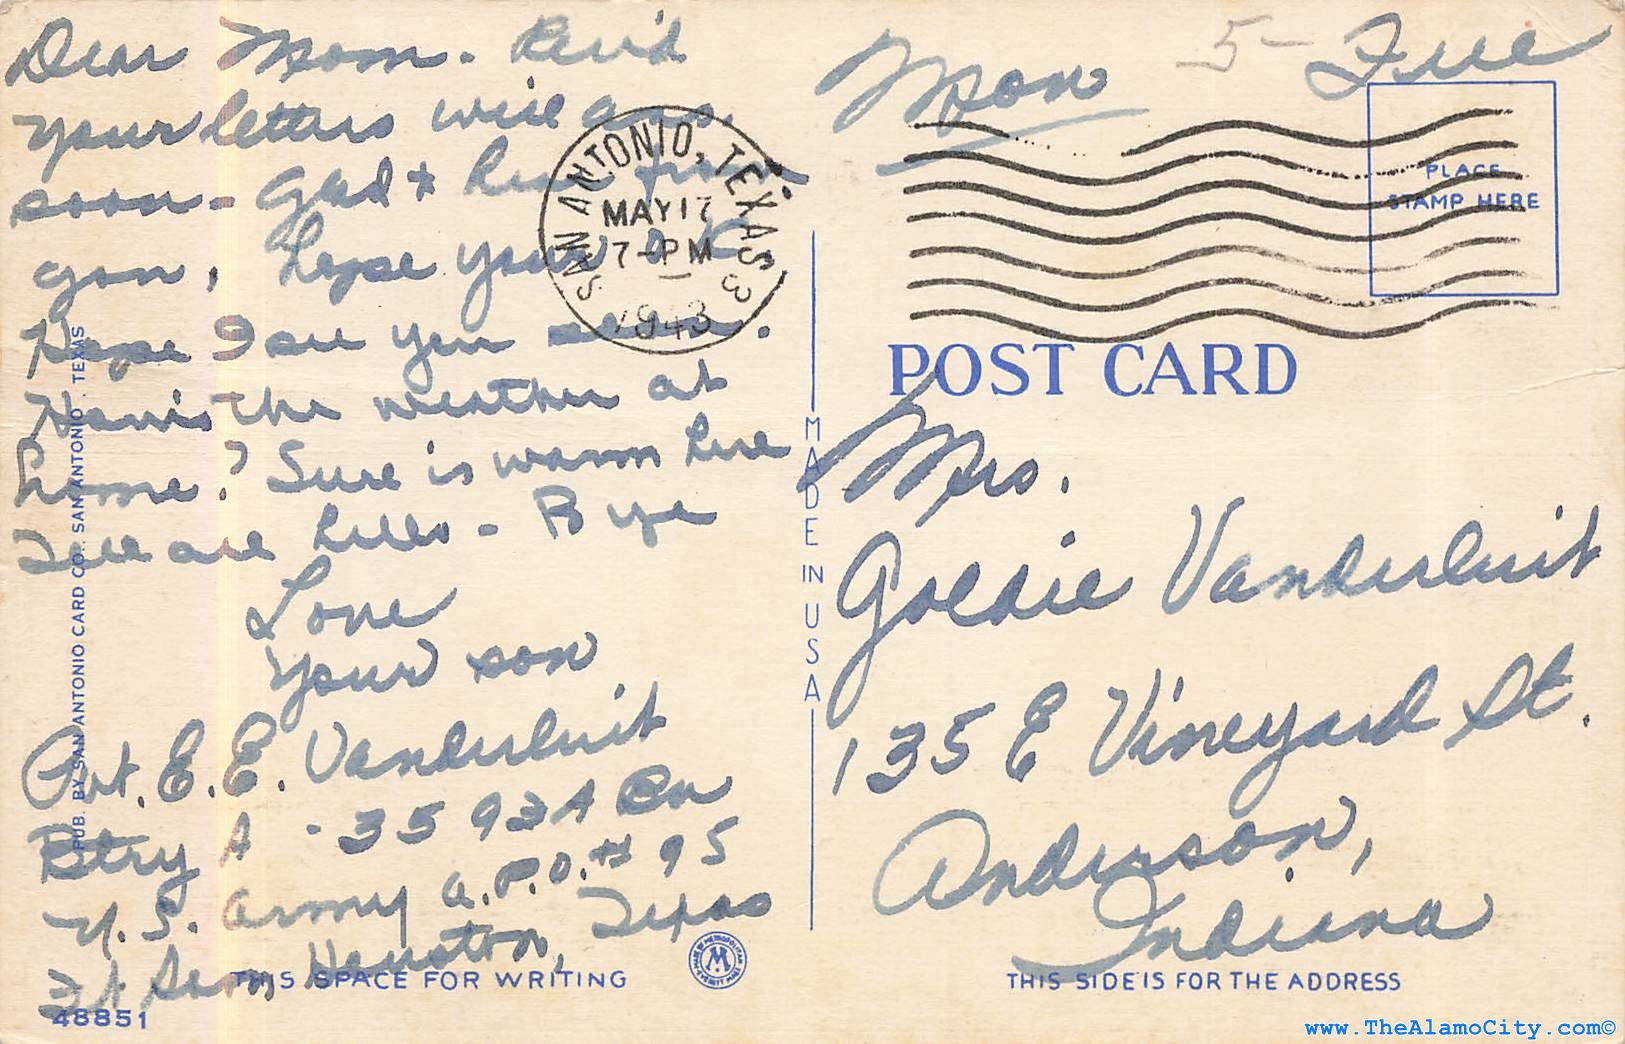 Dear Mom. Rec'd
your letters will ans.
soon - Glad to hear from
you. Hope your O.K.
Hope I see you soon.
How's the weather at
home? Sure is warm here
Tell all hello - Bye
Love
Your son
Pvt. E. E. Vanderluit
Btry A - 359 3 A Bn
U. S. Army A.P.O. # 95
Ft Sam Houston, Texas
THIS SPACE FOR WRITING
48851
PUB. BY SAN ANTONIO CARD CO., SAN ANTONIO, TEXAS
SAN ANTONIO, TEXAS 3
MAY 17
7-PM
1943
Mon
5-
Free
PLACE
STAMP HERE
POST CARD
MADE IN USA
Mrs.
Goldie Vanderluit
135 E Vineyard St.
Anderson,
Indiana
THIS SIDE IS FOR THE ADDRESS
www.TheAlamoCity.com©